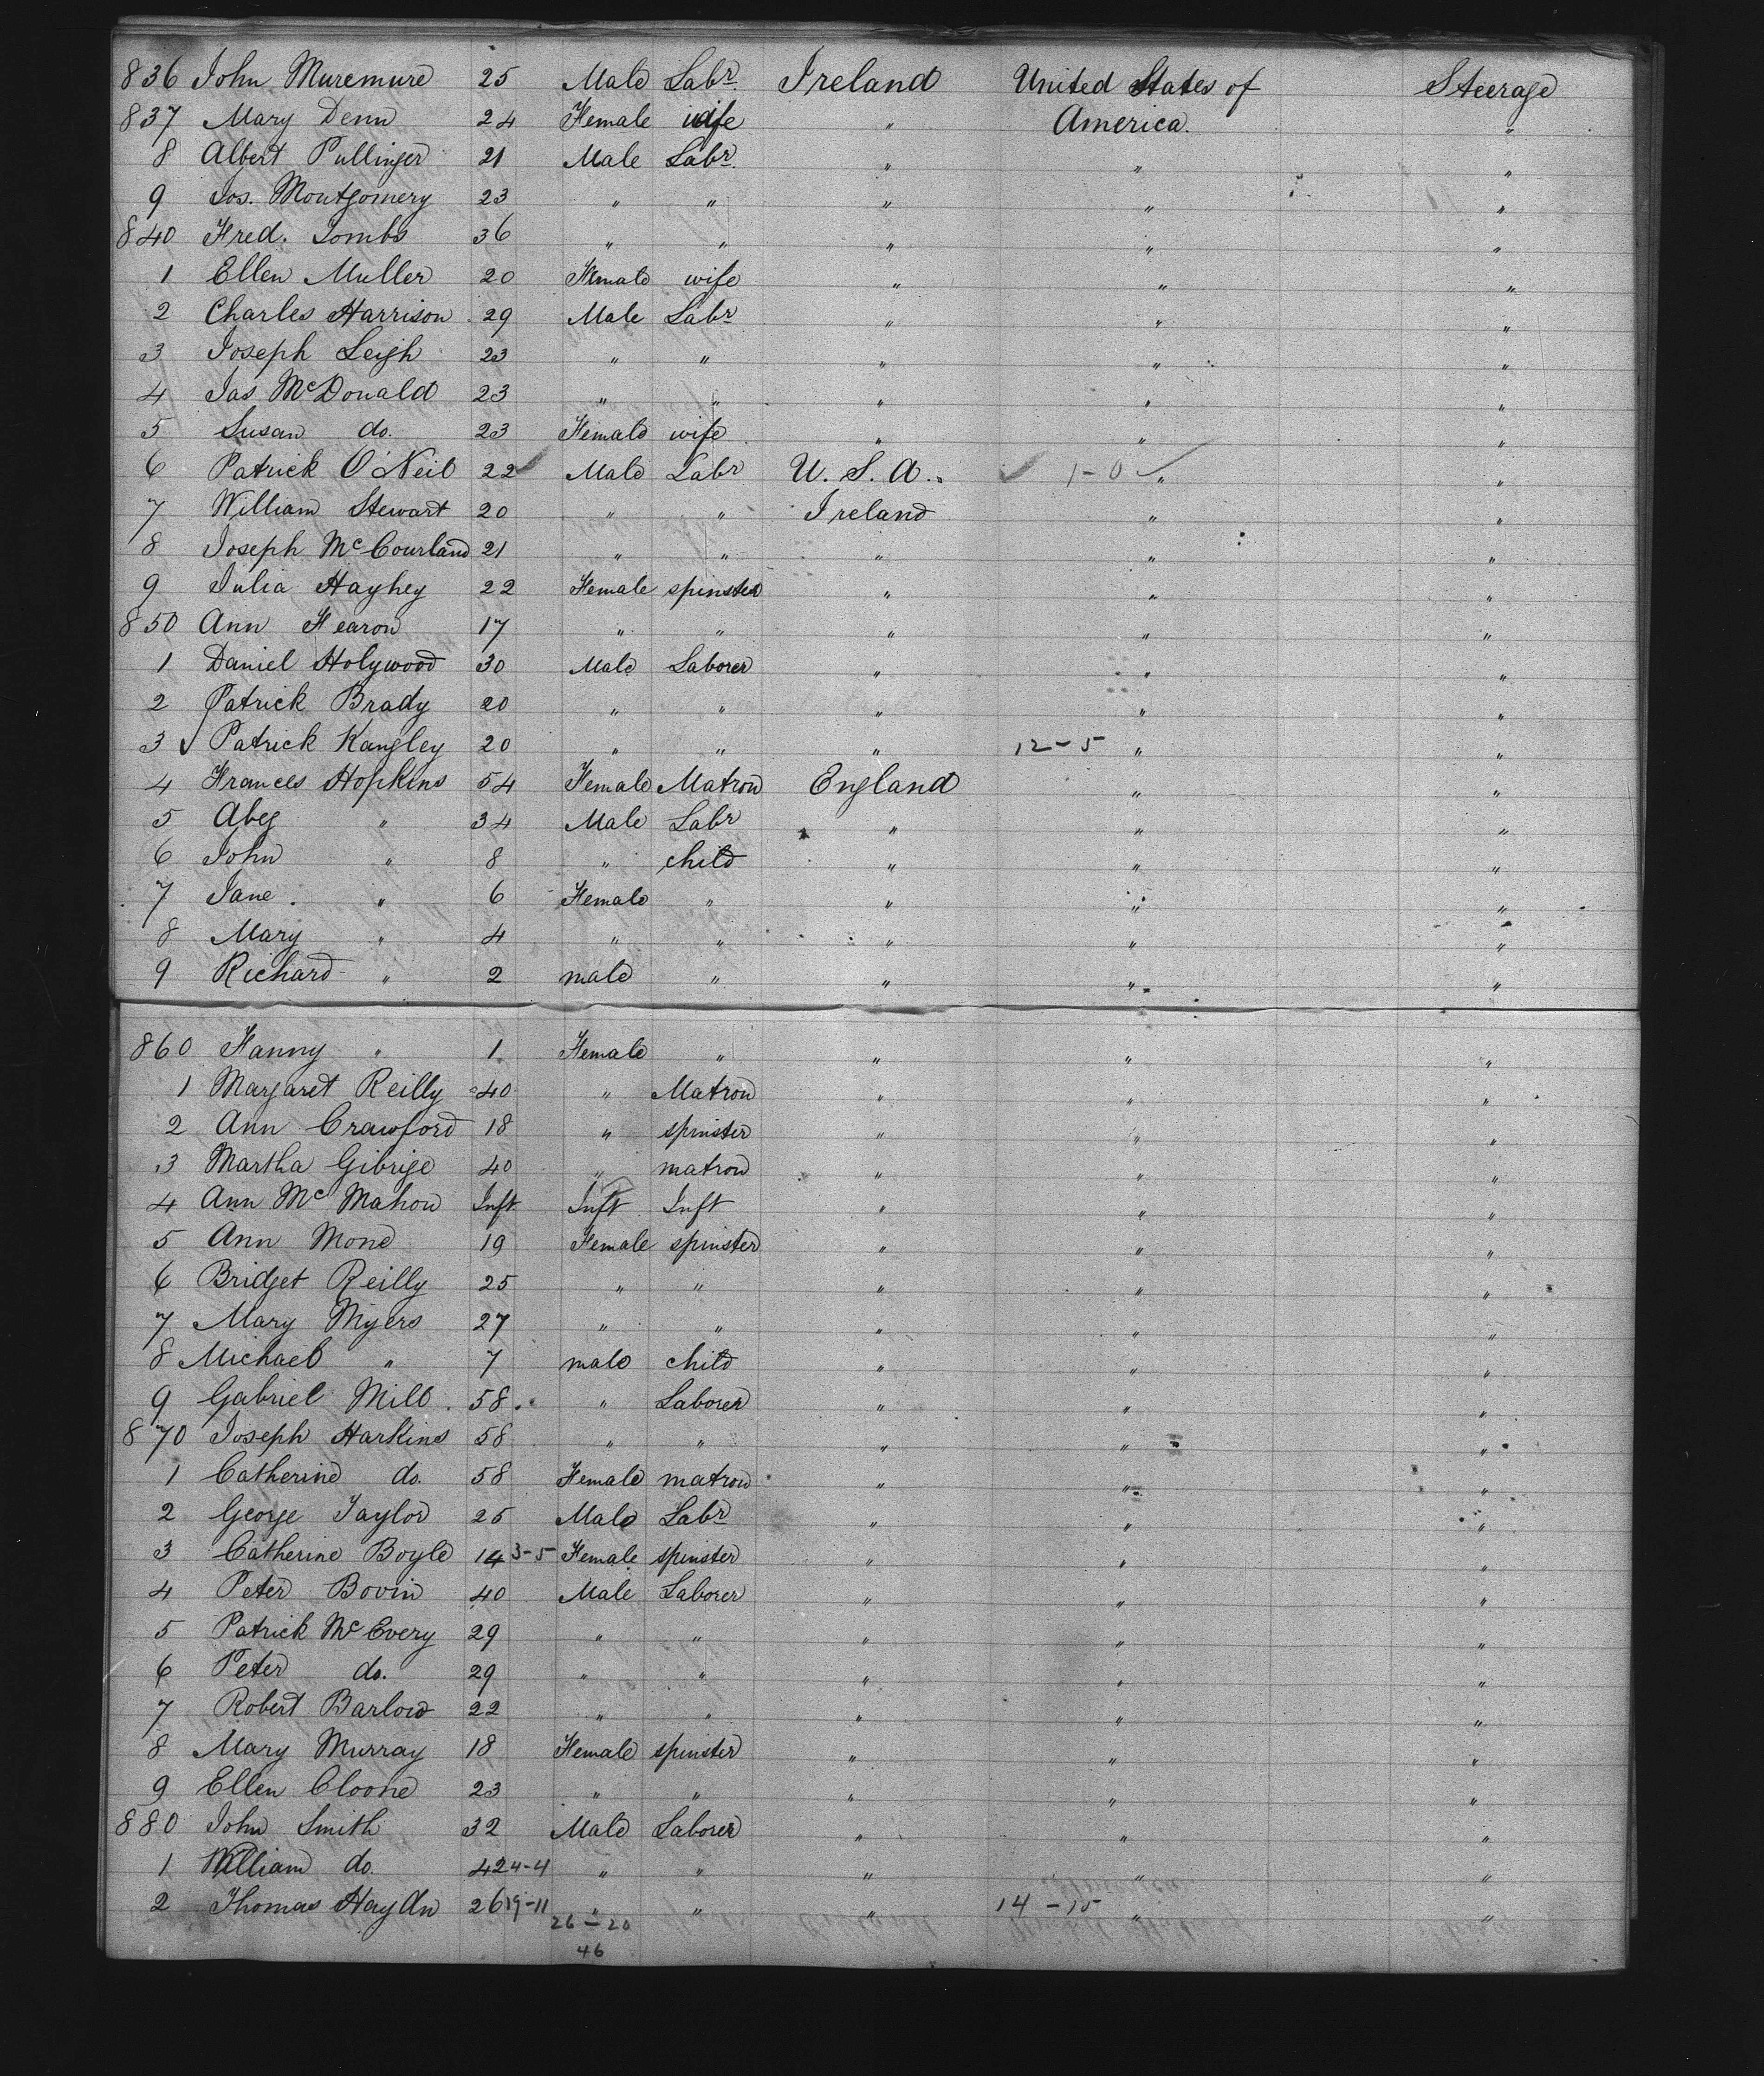 836 John Muremure 25 Male Labr. Ireland United States of Steerage
837 Mary Denn 24 Female wife " America. "
8 Albert Pullinger 21 Male Labr. " " "
9 Jos. Montgomery 23 " " " " "
840 Fred. Tombs 36 " " " " "
1 Ellen Muller 20 Female wife " " "
2 Charles Harrison 29 Male Labr " " "
3 Joseph Leigh 23 " " " " "
4 Jas McDonald 23 " " " " "
5 Susan do. 23 Female wife " " "
6 Patrick O'Neil 22 Male Labr U. S. A. 1-0 " "
7 William Stewart 20 " " Ireland " "
8 Joseph McCourland 21 " " " " "
9 Julia Hayhey 22 Female spinster " " "
850 Ann Hearon 17 " " " " "
1 Daniel Holywood 30 Male Laborer " " "
2 Patrick Brady 20 " " " " "
3 ✓ Patrick Kangley 20 " " " 12-5 " "
4 Frances Hopkins 54 Female Matron England " "
5 Abeg " 34 Male Labr " " "
6 John " 8 " child " " "
7 Jane. " 6 Female " " " "
8 Mary " 4 " " " " "
9 Richard " 2 male " " " "
860 Fanny " 1 Female " " " "
1 Margaret Reilly 40 " Matron " " "
2 Ann Crawford 18 " spinster " " "
3 Martha Gibrige 40 " matron " " "
4 Ann McMahon Inft Inft Inft " " "
5 Ann Mone 19 Female spinster " " "
6 Bridget Reilly 25 " " " " "
7 Mary Myers 27 " " " " "
8 Michael " 7 male child " " "
9 Gabriel Mill. 58. " Laborer " " "
870 Joseph Harkins 58 " " " " "
1 Catherine do. 58 Female matron " " "
2 George Taylor 25 Male Labr " " "
3 Catherine Boyle 14 3-5 Female spinster " " "
4 Peter Bovin 40 Male Laborer " " "
5 Patrick McEvery 29 " " " " "
6 Peter do. 29 " " " " "
7 Robert Barlow 22 " " " " "
8 Mary Murray 18 Female spinster " " "
9 Ellen Cloone 23 " " " " "
880 John Smith 32 Male Laborer " " "
1 William do. 42 4-4 " " " " "
2 Thomas Haydn 26 19-11 " " " 14-15 " "
26-20
46